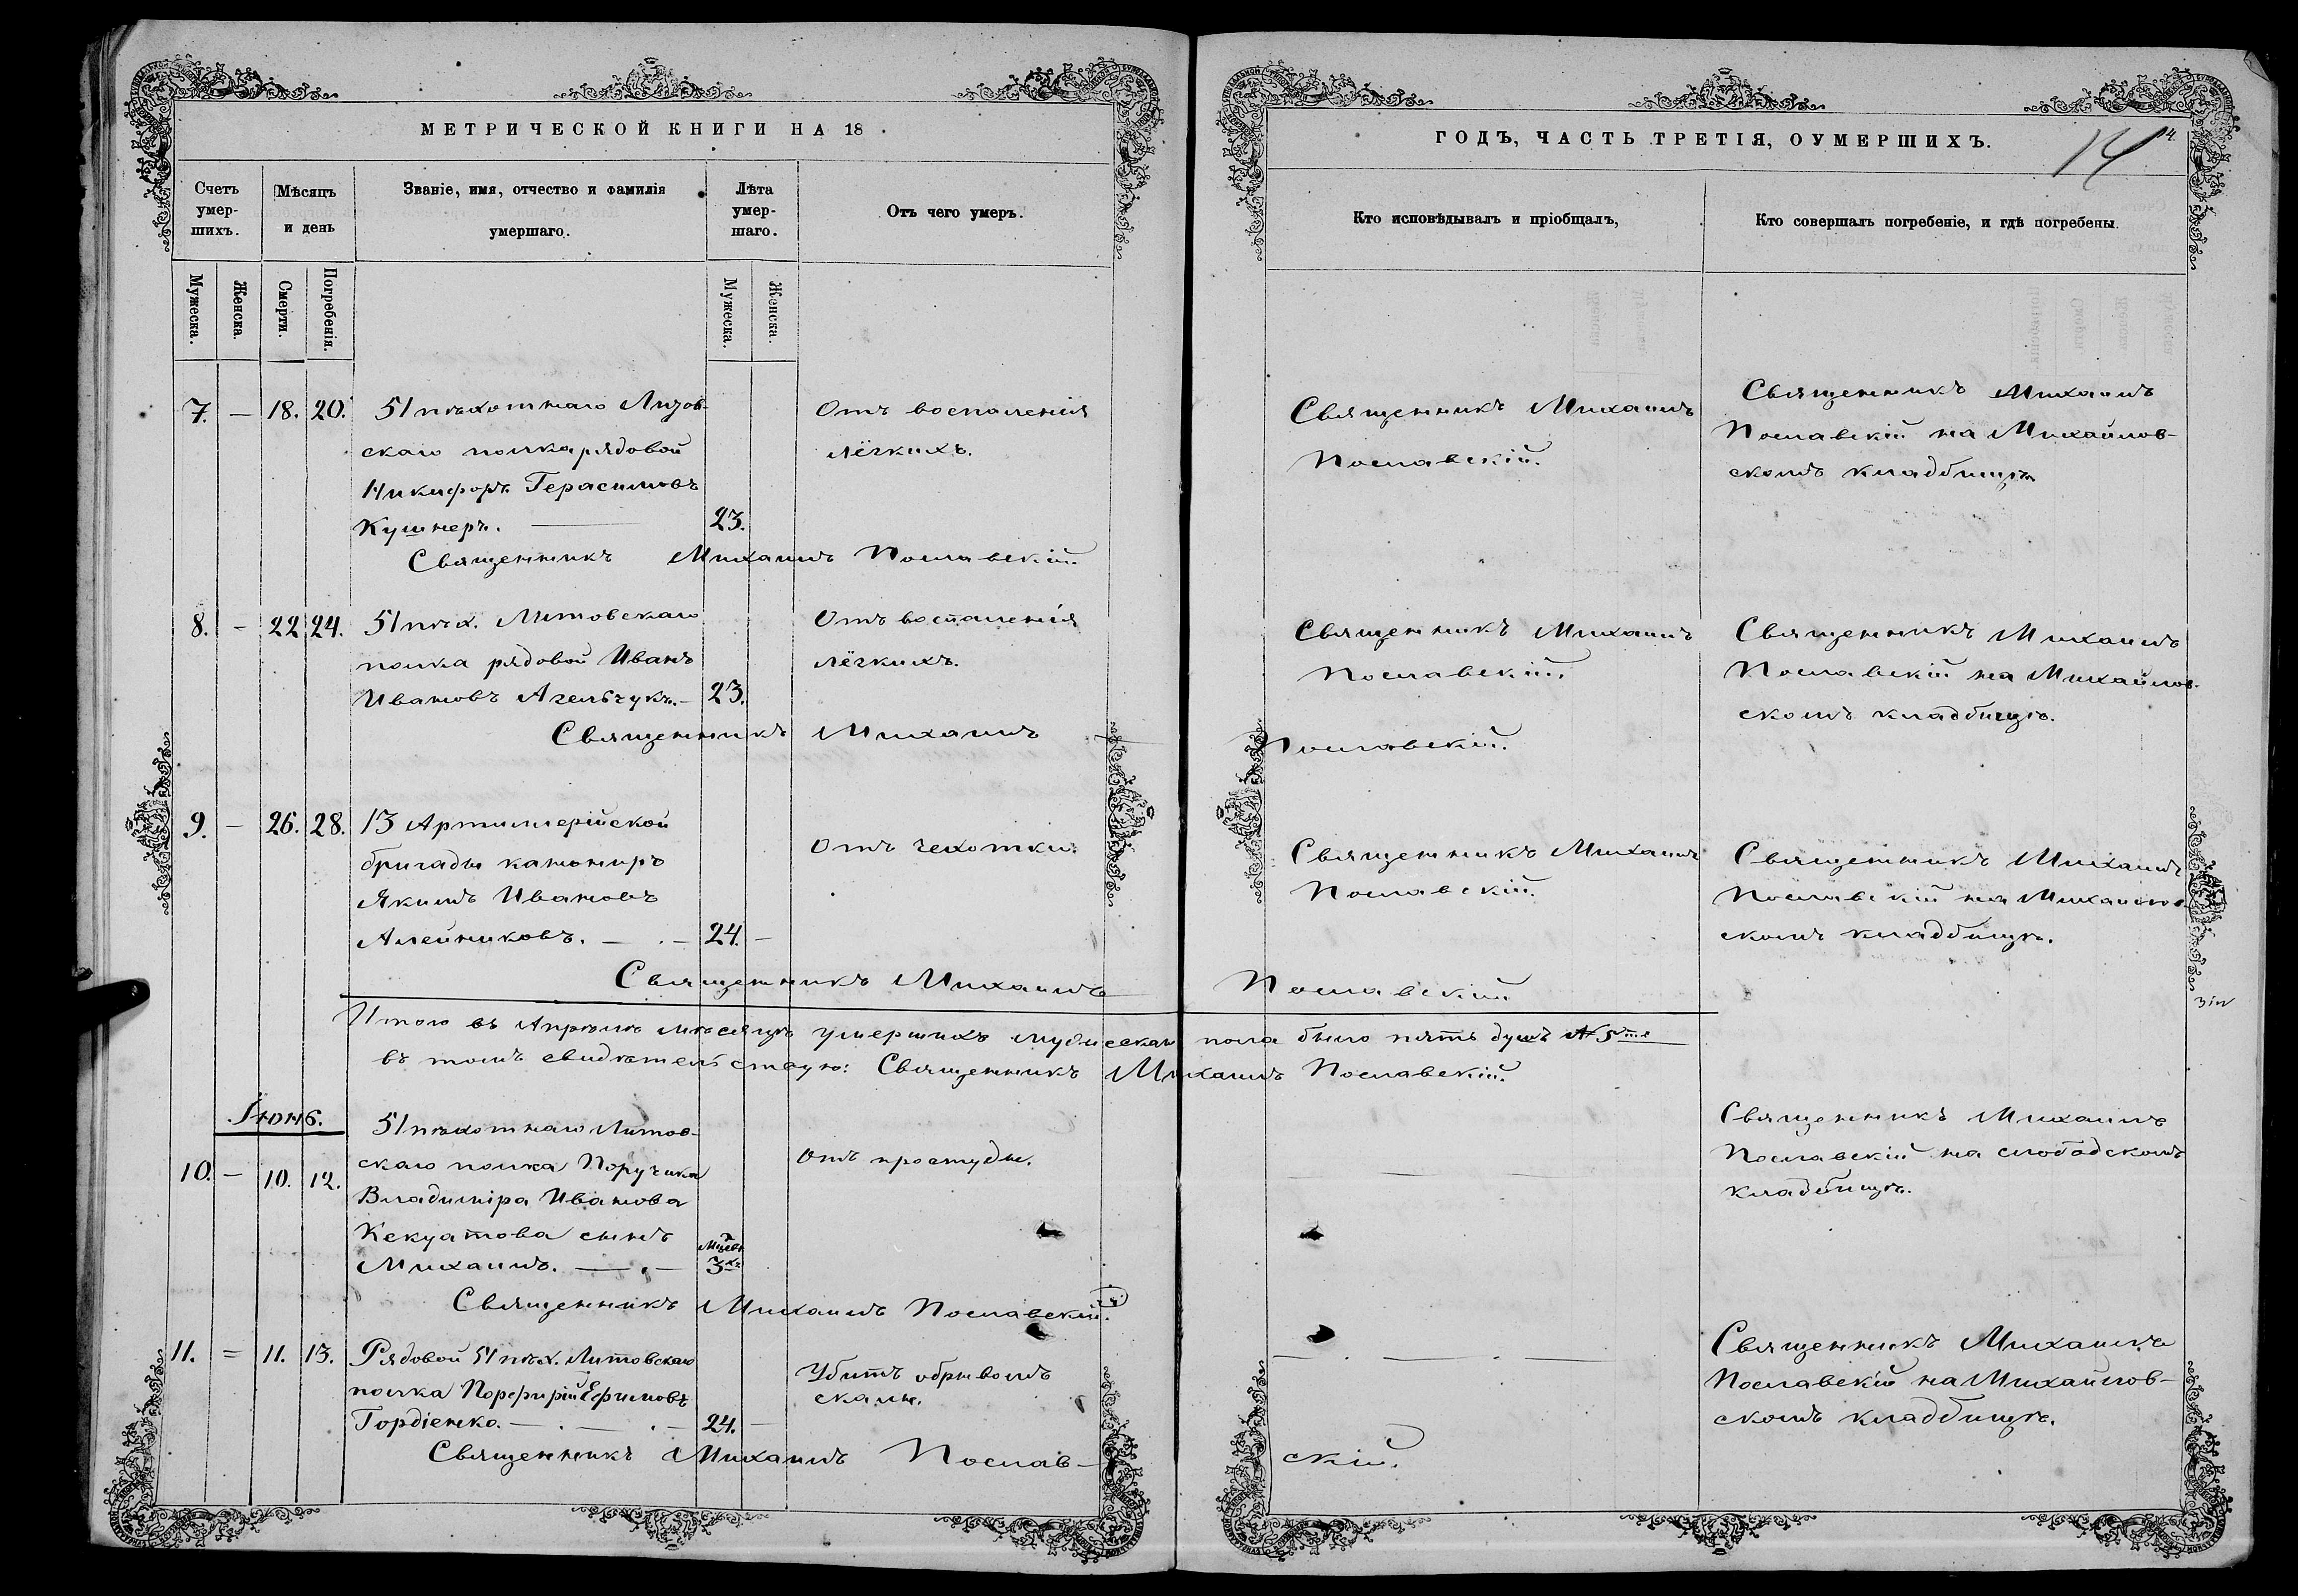 МЕТРИЧЕСКОЙ КНИГИ НА 18
Счетъ умер-шихъ.
Мѣсяцъ и день
Званіе, имя, отчество и фамилія умершаго.
Лѣта умер-шаго.
Отъ чего умеръ.
Мужеска.
Женска.
Смерти.
Погребенія.
Мужеска.
Женска.
7. — 18. 20. 51 пѣхотнаго Литов-
скаго полка рядовой
Никифоръ Герасимовъ
Кушнеръ. — 23.
Отъ воспаленія
лёгкихъ.
Священникъ Михаилъ Пославскій.
8. — 22 24. 51 пѣх. Литовскаго
полка рядовой Иванъ
Ивановъ — 23.
Отъ воспаленія
лёгкихъ.
Священникъ Михаилъ
9. — 26. 28. 13 Артиллерійской
бригады канониръ
Якимъ Ивановъ
Алейниковъ. — 24. —
Отъ чехотки.
Священникъ Михаилъ
Итого въ Апрѣлѣ мѣсяцѣ умершихъ мужескаго пола было пять душъ № 5
въ томъ свидѣтельствую: Священникъ Михаилъ Пославскій.
Іюнь.
10. — 10. 12. 51 пѣхотнаго Литов-
скаго полка Поручика
Владиміра Иванова
Кекуатова сынъ
Михаилъ. — 3
Отъ простуды.
Священникъ Михаилъ Пославскій.
11. = 11. 13. Рядовой 51 пѣх. Литовскаго
полка Порфирій Ефимовъ
Гордіенко. — 24. —
Убитъ обрывомъ
скалы.
Священникъ Михаилъ Послав-
ГОДЪ, ЧАСТЬ ТРЕТІЯ, О УМЕРШИХЪ.
14
14
Кто исповѣдывалъ и пріобщалъ,
Кто совершалъ погребеніе, и гдѣ погребены.
Священникъ Михаилъ
Пославскій.
Священникъ Михаилъ
Пославскій на Михайлов-
скомъ кладбищѣ.
Священникъ Михаилъ
Пославскій.
Священникъ Михаилъ
Пославскій на Михайлов-
скомъ кладбищѣ.
Пославскій.
Священникъ Михаилъ
Пославскій.
Священникъ Михаилъ
Пославскій на Михайлов-
скомъ кладбищѣ.
Пославскій
Священникъ Михаилъ
Пославскій на слободскомъ
кладбищѣ.
Священникъ Михаилъ
Пославскій на Михайлов-
скомъ кладбищѣ.
скій.